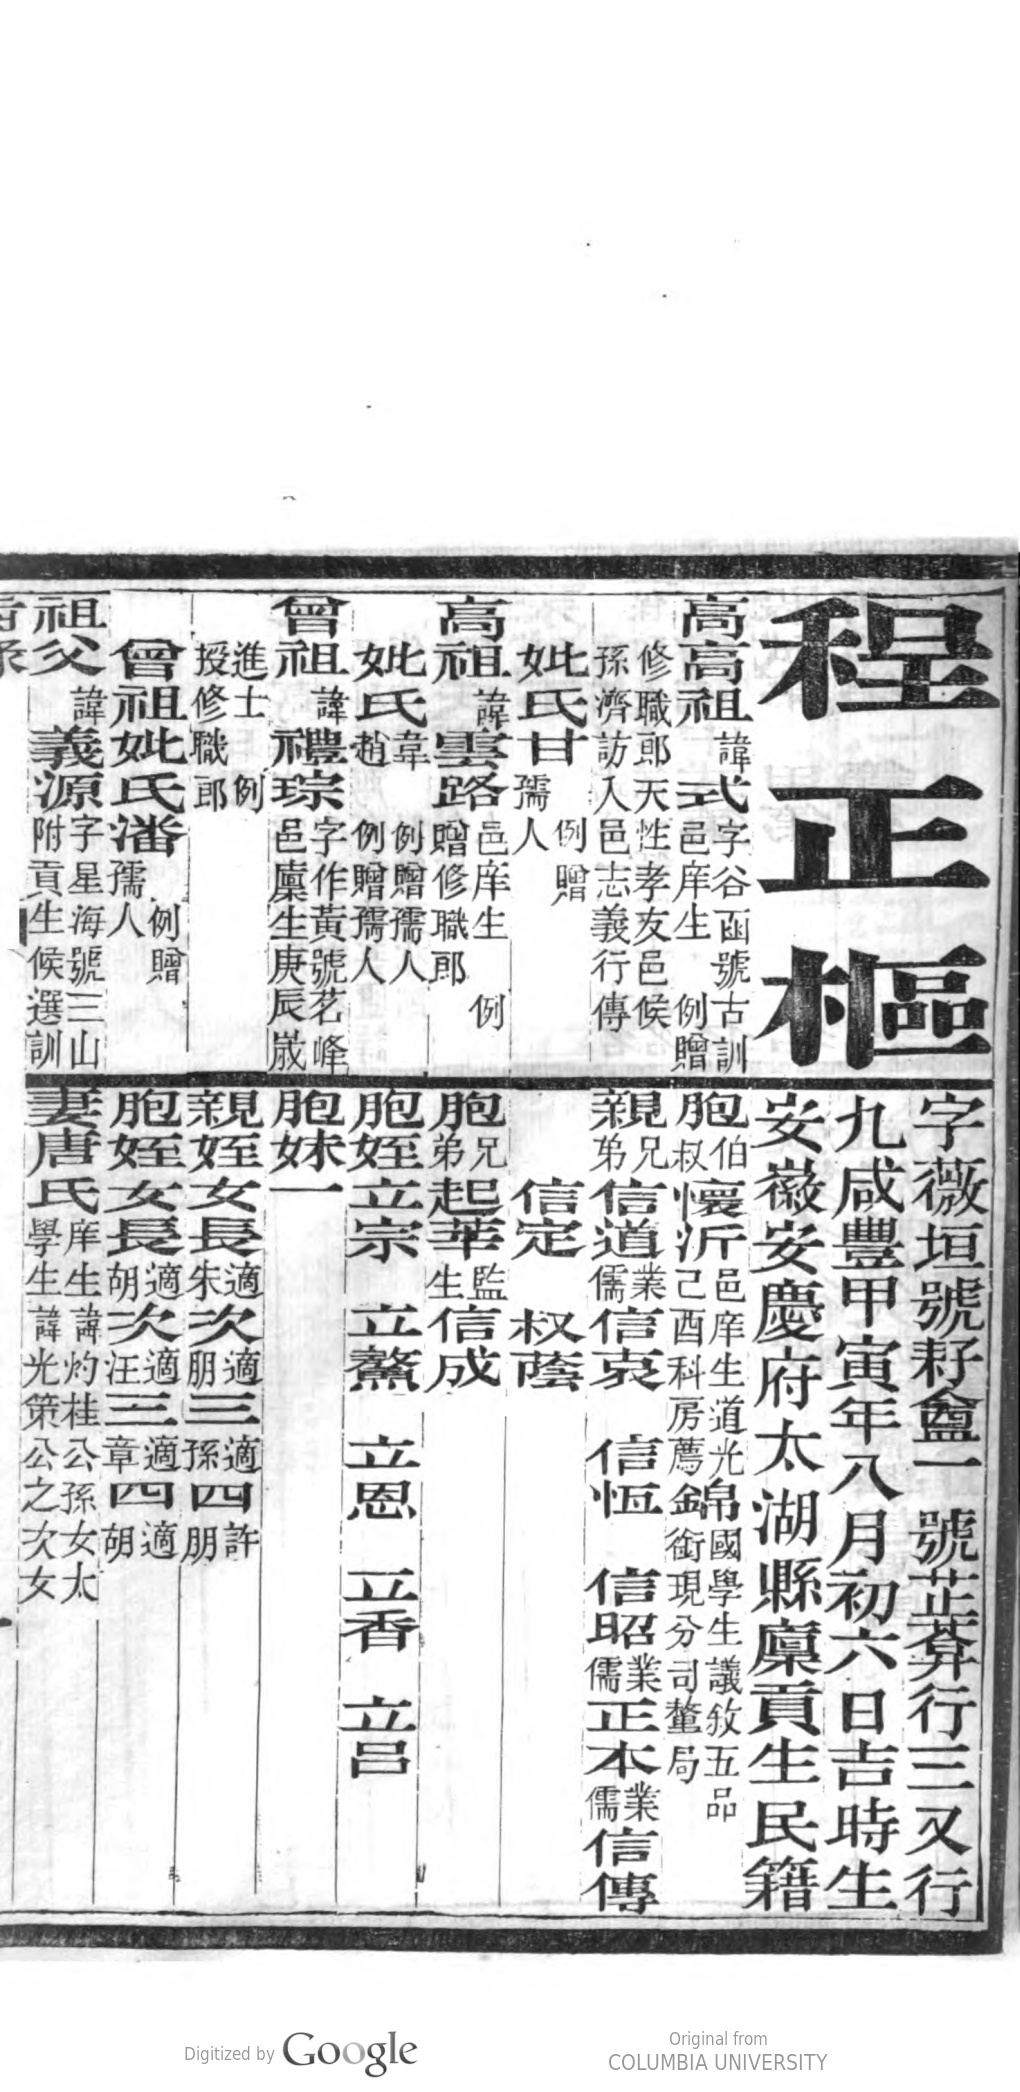 程正樞
字薇垣號耔盦一號芷莽行三又行
九咸豐甲寅年八月初六日吉時生
安徽安慶府太湖縣廩貢生民籍
高高祖諱式字谷函號古訓
邑庠生 例贈
修職郎天性孝友邑候
孫濟訪入邑志義行傳
妣氏甘 例贈
孺人
高祖諱雲路邑庠生 例
贈修職郎
妣氏韋 例贈孺人
趙 例贈孺人
曾祖諱禮琮字作黃號茗峰
邑廩生庚辰歲
進士 例
授修職郎
曾祖妣氏潘 例贈
孺人
祖父諱義源字星海號三山
附貢生候選訓
胞伯叔懷沂邑庠生道光
己酉科房薦
錦國學生議敘五品
銜現分司釐局
親兄弟信道業儒信衷 信恆 信昭業儒正本業儒信傳
信定 权蔭
胞兄弟起華監生信成
胞姪立宗 立鰲 立恩 立香 立呂
胞妹一
親姪女長適朱次適朋三適孫四許朋
胞姪女長適胡次適汪三適章四適胡
妻唐氏庠生諱灼桂公孫女太
學生諱光策公之次女
Digitized by Google
Original from
COLUMBIA UNIVERSITY